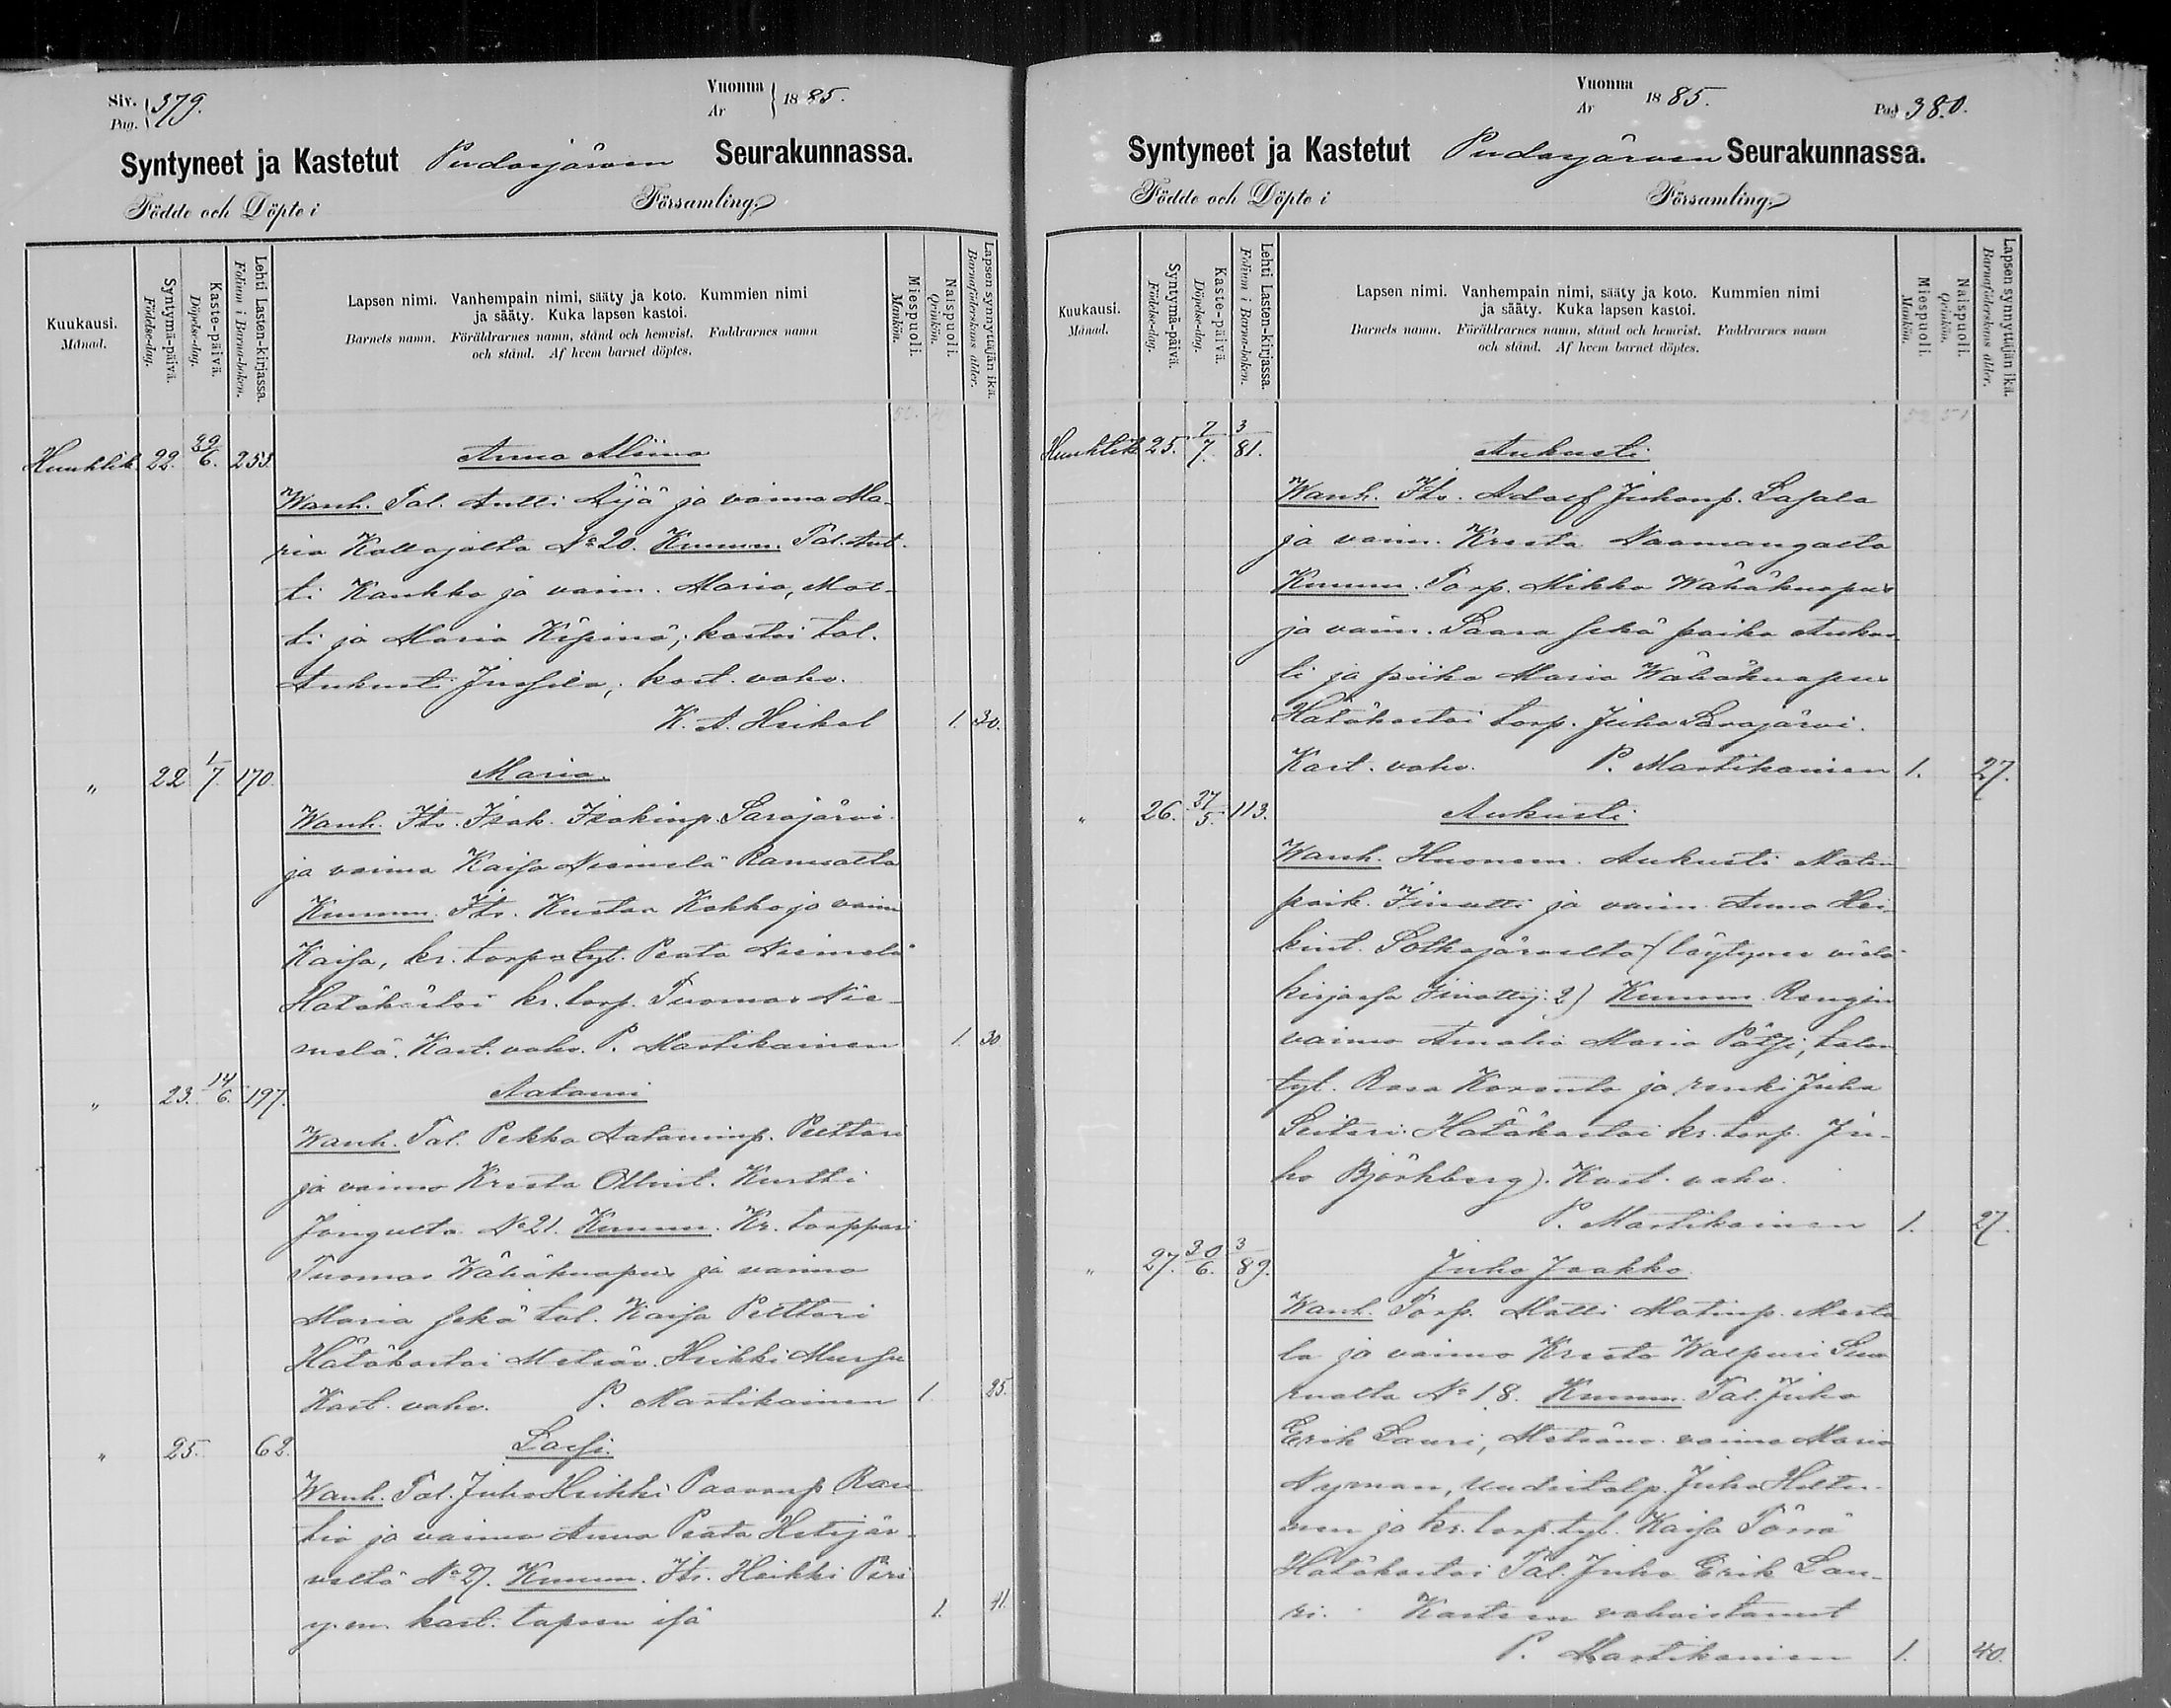 Siv. Pag. 379.
Vuonna År 1885.
Syntyneet ja Kastetut Pudasjärven Seurakunnassa.
Födde och Döpte i Församling.
Kuukausi. Månad.
Syntymä-päivä. Födelse-dag.
Kaste-päivä. Döpelse-dag.
Lehti Lasten-kirjassa. Folium i Barna-boken.
Lapsen nimi. Vanhempain nimi, sääty ja koto. Kummien nimi
ja sääty. Kuka lapsen kastoi.
Barnets namn. Föräldrarnes namn, stånd och hemvist. Faddrarnes namn
och stånd. Af hvem barnet döptes.
Miespuoli. Mankön.
Naispuoli. Qvinkön.
Lapsen synnyttäjän ikä. Barnaföderskans ålder.
Huuhtik 22. 29/6. 253. Anna Aliina
Wanh. Tal. Antti Äijä ja vaimo Ma-
ria Kollajalta No 20. Kumm. Tal. Ant-
ti Kaukko ja vaim. Maria, Mat-
ti ja Maria Kipinä; kastoi tal.
Aukusti Jussila; kast. vahv.
K. A. Heikel 1. 30.
" 22 1/7. 170. Maria.
Wanh. Its. Isak Isakinp. Sarajärvi
ja vaimo Kaisa Niemelä Ranualta
Kumm. Its. Kustaa Kokko ja vaim
Kaisa, kr. torp. tyt. Peata Niemelä
Hätäkastoi kr. torp. Tuomas Nie-
melä. Kast. vahv. P. Martikainen 1. 30
" 23. 14/6. 197. Aatami
Wanh. Tal. Pekka Aataminp. Peittari
ja vaimo Kreeta Ollint. Kurtti
Jongulta No 21. Kumm. Kr. torppari
Tuomas Wähäkuopus ja vaimo
Maria sekä tal. Kaisa Peittari
Hätäkastoi Metsäv. Heikki Mursu
Kast. vahv. P. Martikainen 1. 25.
" 25. 62. Lassi.
Wanh. Tal. Juho Heikki Paavonp. Rau-
tio ja vaimo Anna Peata Hetejär-
veltä No 27. Kumm. Its. Heikki Piri
y. m. kast. lapsen isä 1. 41.
Vuonna År 1885.
Pag 380.
Syntyneet ja Kastetut Pudasjärven Seurakunnassa.
Födde och Döpte i Församling.
Kuukausi. Månad.
Syntymä-päivä. Födelse-dag.
Kaste-päivä. Döpelse-dag.
Lehti Lasten-kirjassa. Folium i Barna-boken.
Lapsen nimi. Vanhempain nimi, sääty ja koto. Kummien nimi
ja sääty. Kuka lapsen kastoi.
Barnets namn. Föräldrarnes namn, stånd och hemvist. Faddrarnes namn
och stånd. Af hvem barnet döptes.
Miespuoli. Mankön.
Naispuoli. Qvinkön.
Lapsen synnyttäjän ikä. Barnaföderskans ålder.
Huuhtik 25. 7/7. 3/81. Aukusti
Wanh. Its. Adolf Juhonp. Lasala
ja vaim. Kreeta Naamangalta
Kumm. Torp. Mikko Wähäkuopus
ja vaim. Saara sekä poika Aukus-
ti ja piika Maria Wähäkuopus
Hätäkastoi torp. Juho Sarajärvi.
Kast. vahv. P. Martikainen 1. 27.
" 26. 27/5. 113. Aukusti
Wanh. Huonem. Aukusti Matin
poik. Jinatti ja vaim. Anna Hei-
kint. Sotkajärveltä (löytynee vielä
kirjassa Jinattij. 2) Kumm. Rengin
vaimo Amalia Maria Pätsi, talon
tyt. Rosa Koronto ja renki Juho
Leitari. Hätäkastoi kr. torp. Ju-
ho Björkberg). Kast. vahv.
P. Martikainen 1. 27.
" 27. 30/6. 3/89. Juho Jaakko
Wanh. Torp. Matti Matinp. Merta
la ja vaimo Kreeta Walpuri Siu-
rualta No 18. Kumm. Tal. Juho
Erik Lauri, Metsänv. vaimo Maria
Nyman, uudistalp. Juho Heltu-
nen ja kr. torp. tyt. Kaisa Törrö
Hätäkastoi Tal. Juho Erik Lau-
ri. Kasteen vahvistanut
P. Martikainen 1. 40.